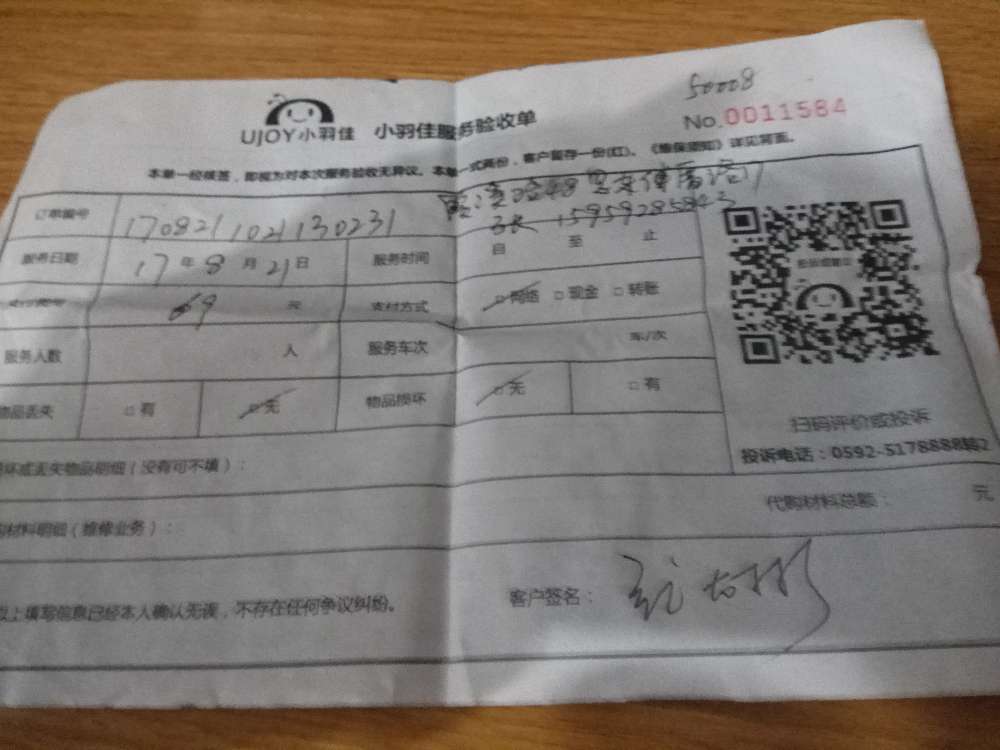 50008
UJOY小羽佳 小羽佳服务验收单 No.0011584
本单一经核签，即视为对本次服务验收无异议。本单一式两份，客户留存一份(红)。《维保须知》详见背面。
订单编号 170821102130231
15959285843
服务日期 17年8月21日 服务时间 自 至 止
69 元 支付方式 □网络 □现金 □转账
服务人数 人 服务车次 车/次
物品丢失 □有 □无 物品损坏 □无 □有
扫码评价或投诉
投诉电话：0592-5178888转2
坏或丢失物品明细（没有可不填）：
材料明细（维修业务）： 代购材料总额： 元
以上填写信息已经本人确认无误，不存在任何争议纠纷。 客户签名：